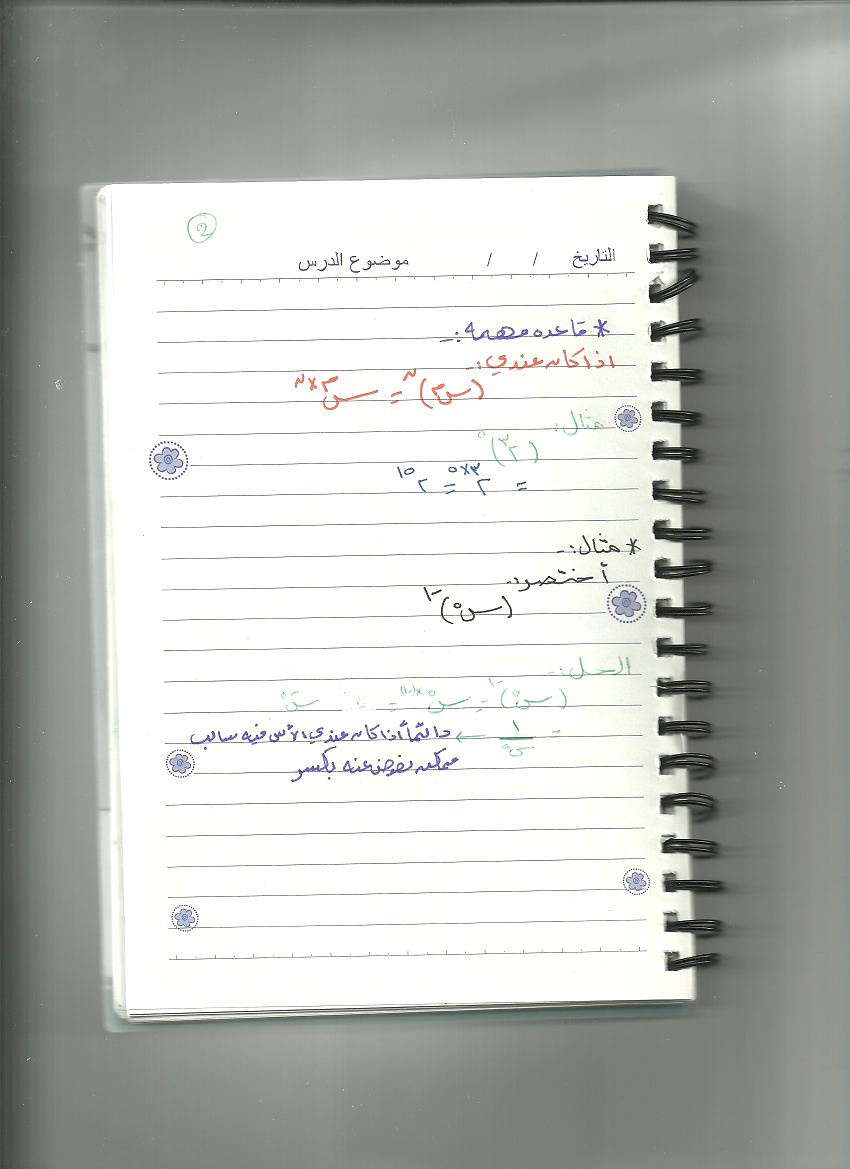 2
التاريخ / / موضوع الدرس
* قاعده مهمه :-
اذا كان عندي :-
(س^م)^ن = س^م×ن
مثال :-
(٢^٣)^٥
= ٢^٣×٥ = ٢^١٥
* مثال :-
أختصر :-
(س^٥)^-١
الحل :-
(س^٥)^-١ = س^٥×(-١) = س^-٥
= ١/س^٥ ← دائماً اذا كان عندي الأس فيه سالب
ممكن نعوض عنه بكسر